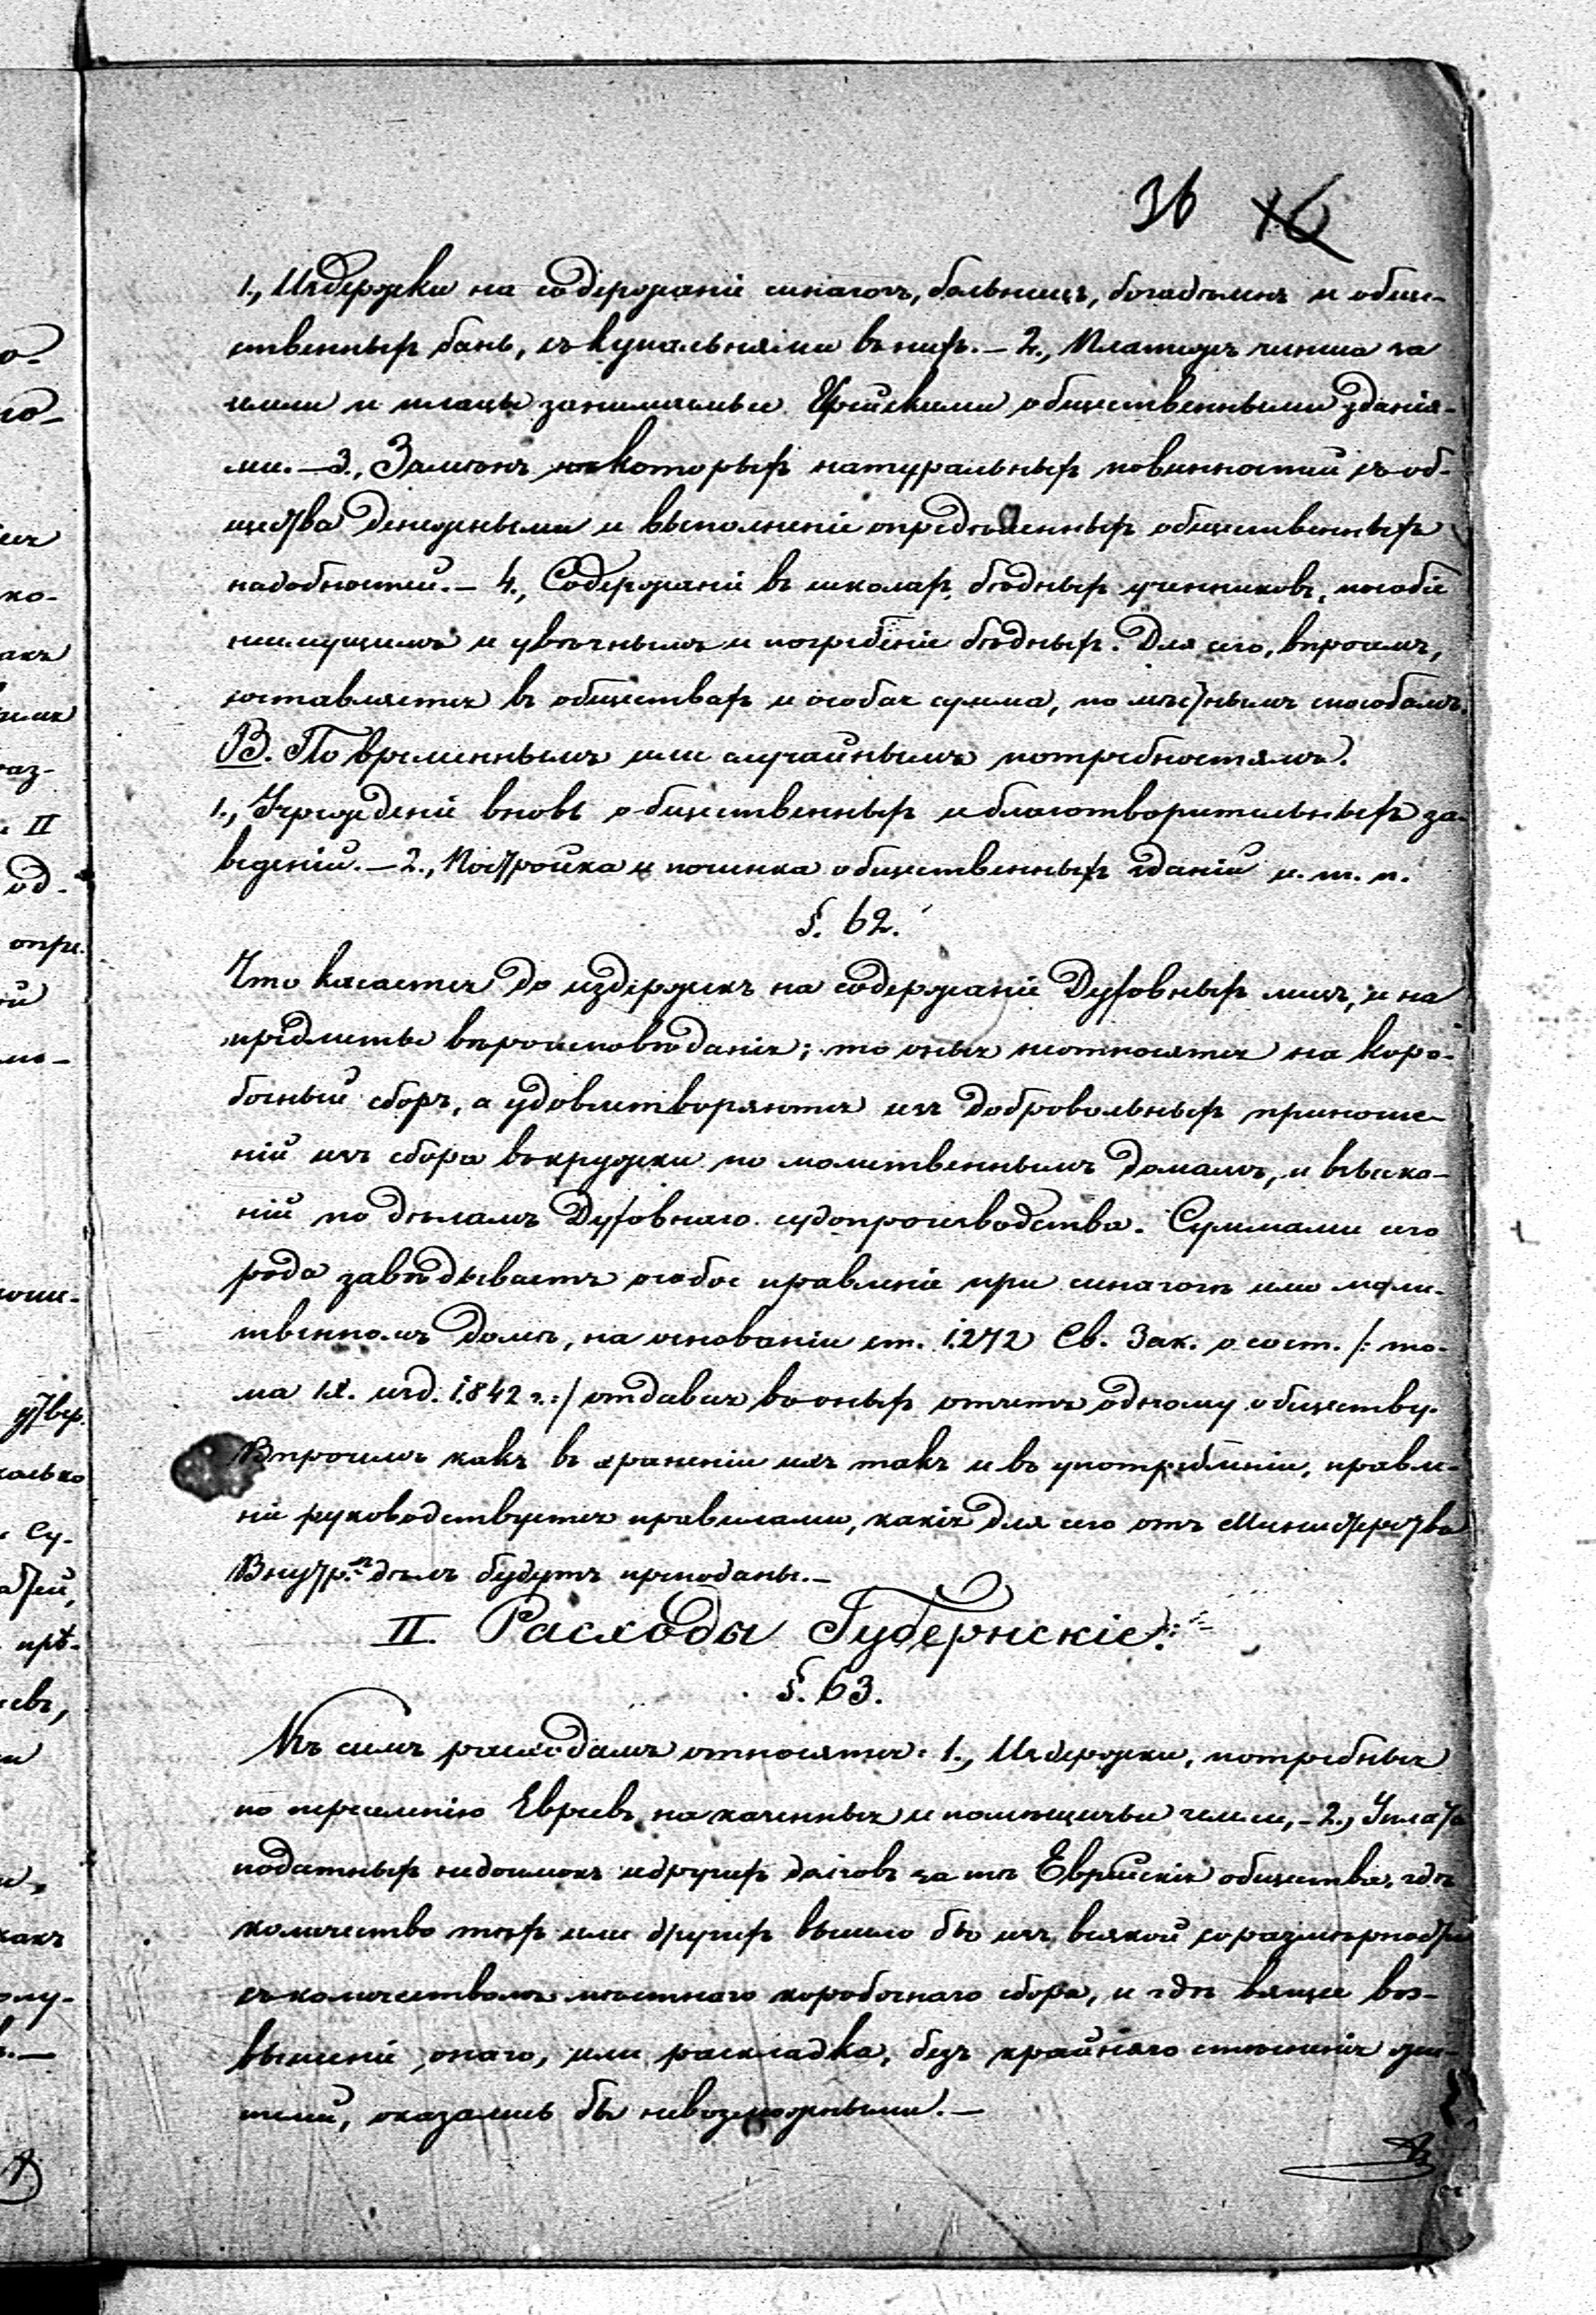 36 16
1., Издержки на содержаніе синагогъ, больницъ, богадѣленъ и обще-
ственныхъ бань, съ купальнями въ нихъ. – 2., Платежъ чинша за
земли и плацы занимаемые Еврейскими общественными зданія-
ми. – 3., Замѣнъ некоторыхъ натуральныхъ повинностей съ об-
щества денежными и выполненіе опредѣленныхъ общественныхъ
надобностей. – 4., Содержаніе въ школахъ бѣдныхъ учениковъ, пособіе
неимущимъ и увѣчнымъ и погребеніе бѣдныхъ. Для сего, впрочемъ,
составляется въ обществахъ и особая сумма, по мѣстнымъ способамъ.
В. По временнымъ или случайнымъ потребностямъ.
1., Учрежденіе вновь общественныхъ и благотворительныхъ за-
веденій. – 2., Постройка и починка общественныхъ зданій и. т. п.
§. 62.
Что касается до издержекъ на содержаніе Духовныхъ лицъ, и на
предметы вѣроисповѣданія; то оныя неотносятся на коро-
бочный сборъ, а удовлетворяются изъ добровольныхъ приноше-
ній изъ сбора въ кружки по молитвеннымъ домамъ, и взыска-
ній по дѣламъ Духовнаго судопроизводства. Суммами сего
рода завѣдываетъ особое правленіе при синагогѣ или моли-
твенномъ домѣ, на основаніи ст. 1272 Св. Зак. о сост. /: то-
ма IX. изд. 1842 г. :/ отдавая во оныхъ отчетъ одному обществу.
Впрочемъ какъ въ храненіи ихъ такъ и въ употребленіи, правле-
ніе руководствуется правилами, какія для сего отъ Министерства
Внутр.ⁿ дѣлъ будутъ преподаны. –
II. Расходы Губернскіе.
§. 63.
Къ симъ расходамъ относятся: 1., Издержки, потребныя
по переселенію Евреевъ на казенныя и помѣщичьи земли, – 2., Уплата
податныхъ недоимокъ и другихъ долговъ за тѣ Еврейскія общества, гдѣ
количество тѣхъ или другихъ вышло бы изъ всякой соразмѣрности
съ количествомъ мѣстнаго коробочнаго сбора, и гдѣ вящее воз-
вышеніе онаго, или раскладка, безъ крайняго стѣсненія жи-
телей, оказались бы невозможными. –